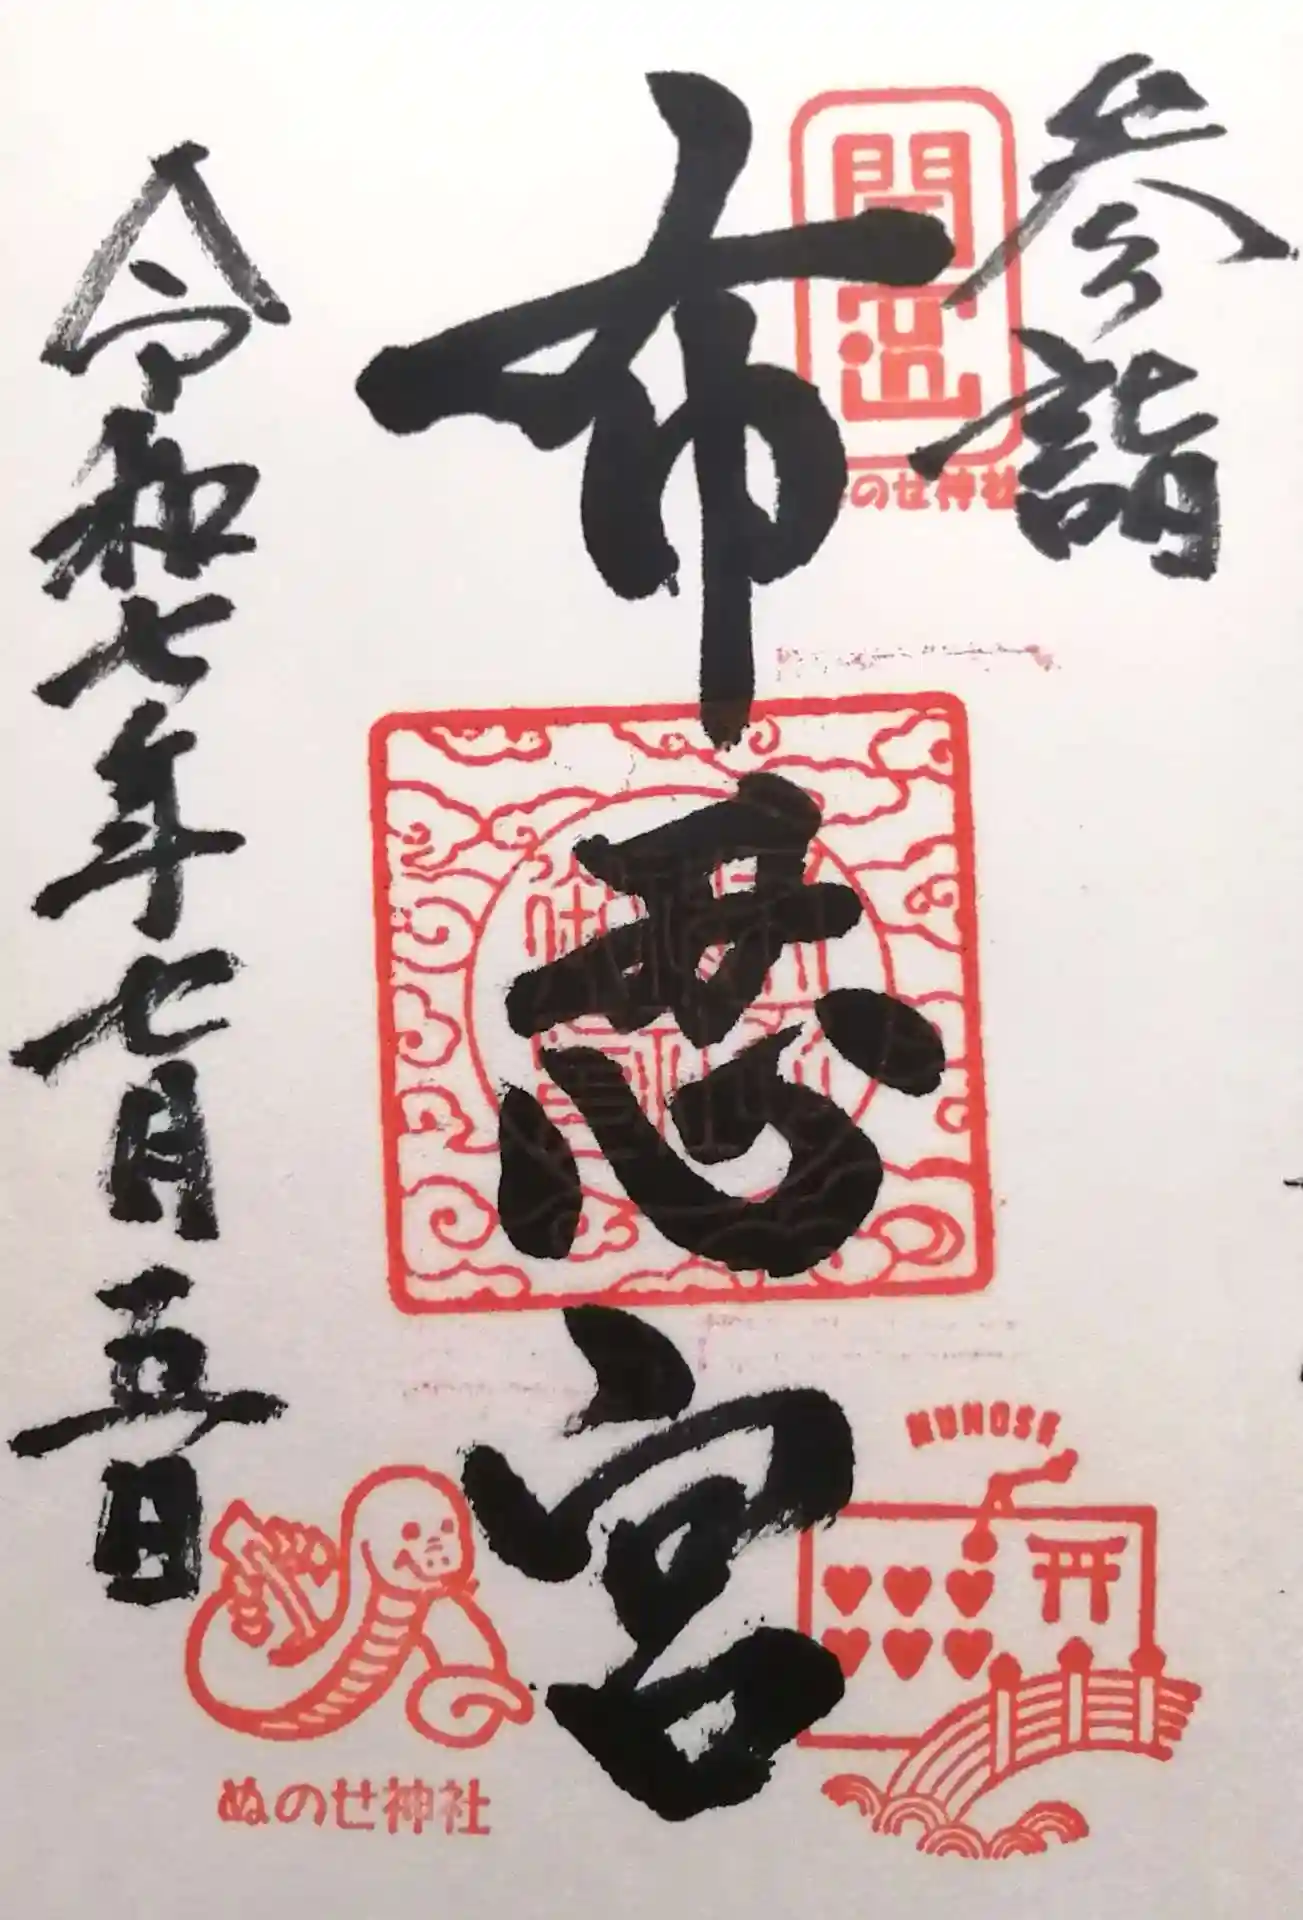 参詣
開運
のせ神社
布忍宮
NUNOSE
令和七年七月五日
ぬのせ神社